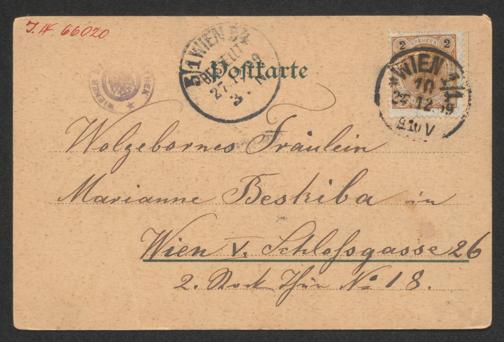 J. N. 66020
Postkarte
WIEN 5/1
27.12.99
3. N
2 2
WIEN 1/1
10
27.12.99
9.10 V
Wolgebornes Fräulein
Marianne Beskiba in
Wien V. Schloßgasse 26
2. Stock Thür No 18.